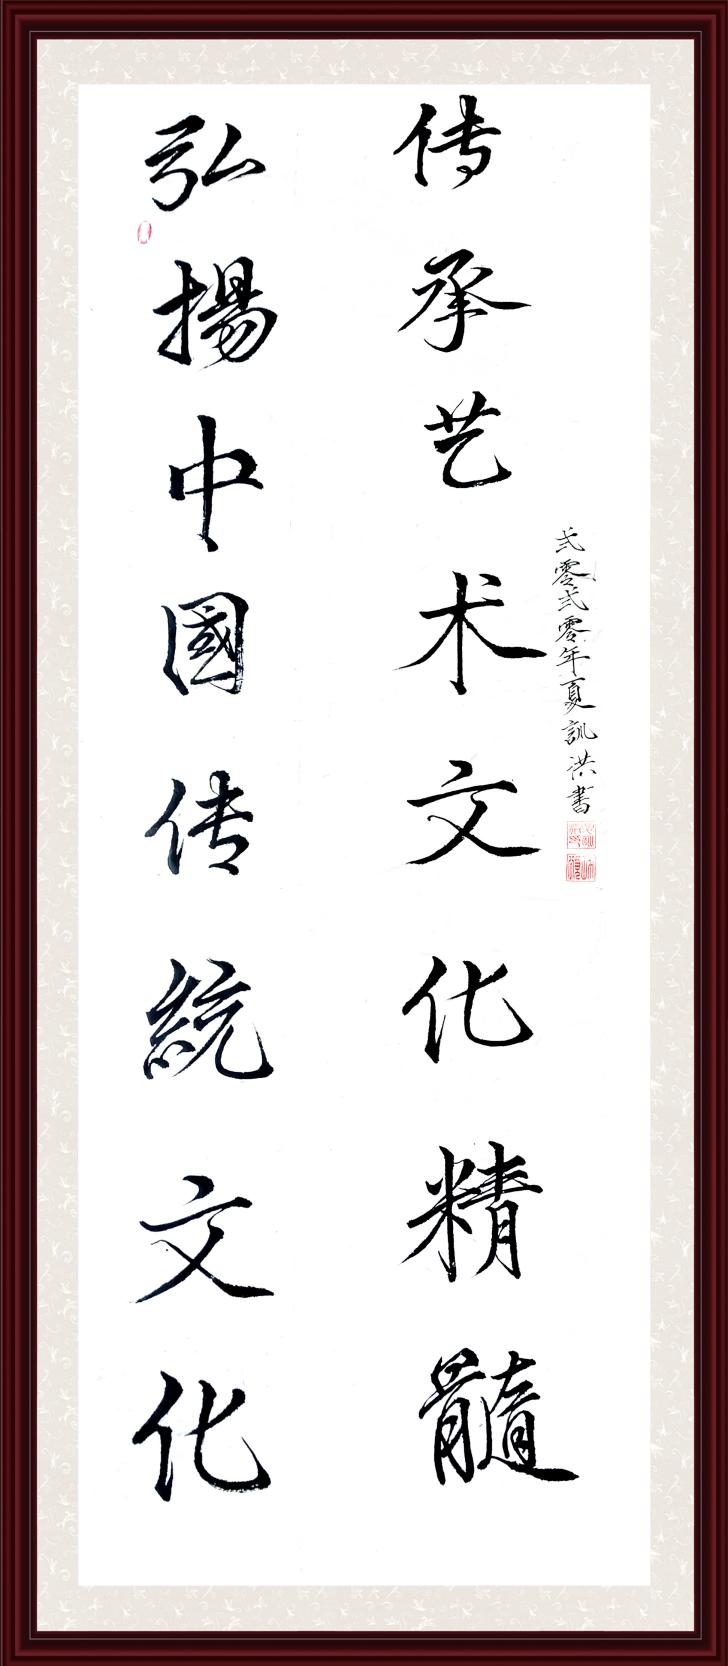 弘揚中國传統文化
传承艺术文化精髓
弍零弍零年夏訓洪書